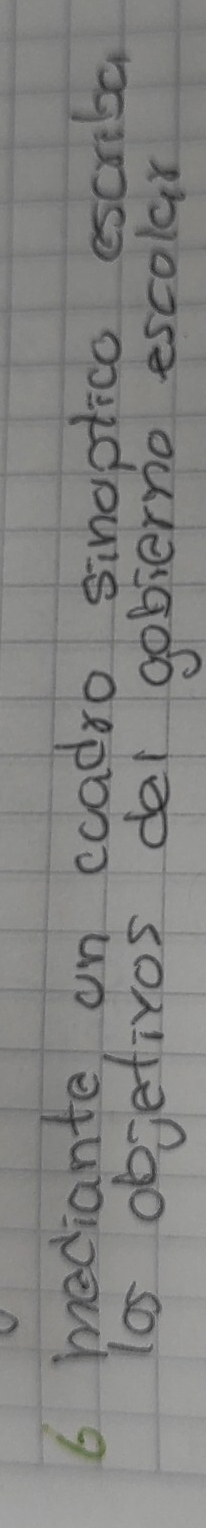 6 mediante un cuadro sinoptico escriba
los objetivos del gobierno escolar